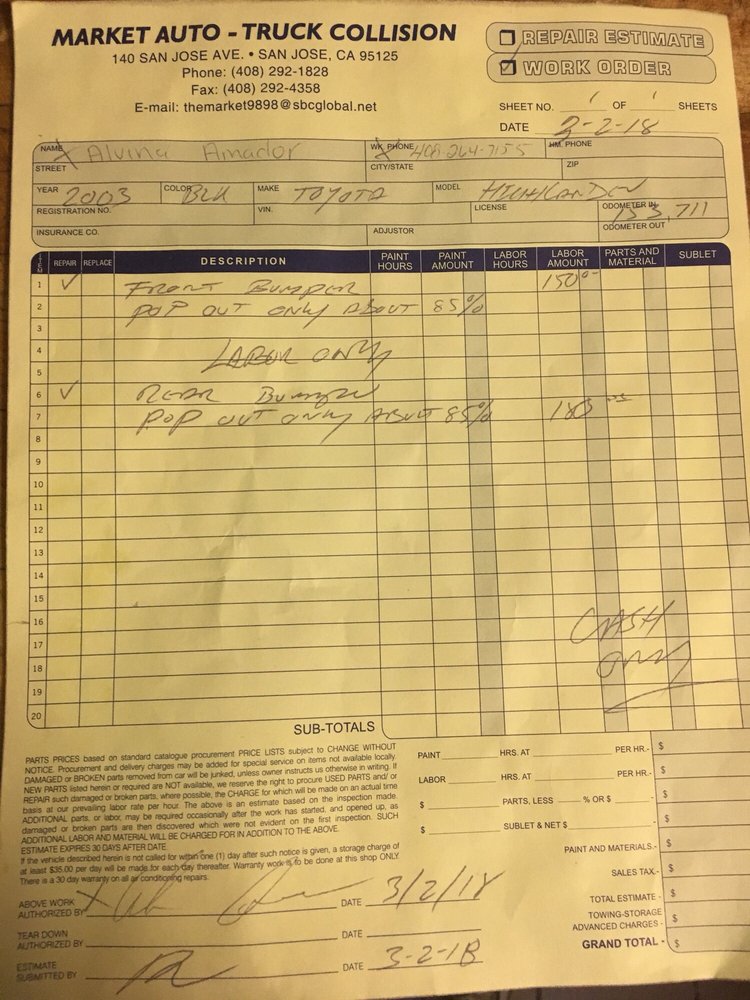 MARKET AUTO - TRUCK COLLISION
140 SAN JOSE AVE. • SAN JOSE, CA 95125
Phone: (408) 292-1828
Fax: (408) 292-4358
E-mail: themarket9898@sbcglobal.net
REPAIR ESTIMATE
WORK ORDER
SHEET NO. 1 OF 1 SHEETS
DATE 3-2-18
NAME Alvina Amador WK. PHONE 408-264-7155 HM. PHONE
STREET CITY/STATE ZIP
YEAR 2003 COLOR BLK MAKE TOYOTA MODEL HIGHLANDER
REGISTRATION NO. VIN. LICENSE ODOMETER IN 153,711
INSURANCE CO. ADJUSTOR ODOMETER OUT
ITEM REPAIR REPLACE DESCRIPTION PAINT HOURS PAINT AMOUNT LABOR HOURS LABOR AMOUNT PARTS AND MATERIAL SUBLET
1 ✓ FRONT BUMPER 150
2 POP OUT ONLY ABOUT 85%
3
4 LABOR ONLY
5
6 ✓ REAR BUMPER
7 POP OUT ONLY ABOUT 85% 180
8
9
10
11
12
13
14
15
16 CASH
17 ONLY
18
19
20
SUB-TOTALS
PARTS PRICES based on standard catalogue procurement PRICE LISTS subject to CHANGE WITHOUT
NOTICE. Procurement and delivery charges may be added for special service on items not available locally.
DAMAGED or BROKEN parts removed from car will be junked, unless owner instructs us otherwise in writing. If
NEW PARTS listed herein or required are NOT available, we reserve the right to procure USED PARTS and/ or
REPAIR such damaged or broken parts, where possible, the CHARGE for which will be made on an actual time
basis at our prevailing labor rate per hour. The above is an estimate based on the inspection made.
ADDITIONAL parts, or labor, may be required occasionally after the work has started, and opened up, as
damaged or broken parts are then discovered which were not evident on the first inspection. SUCH
ADDITIONAL LABOR AND MATERIAL WILL BE CHARGED FOR IN ADDITION TO THE ABOVE.
ESTIMATE EXPIRES 30 DAYS AFTER DATE
If the vehicle described herein is not called for within one (1) day after such notice is given, a storage charge of
at least $35.00 per day will be made for each day thereafter. Warranty work is to be done at this shop ONLY
There is a 30 day warranty on all air conditioning repairs.
PAINT HRS. AT PER HR.- $
LABOR HRS. AT PER HR.- $
$ PARTS, LESS % OR $ - $
$ SUBLET & NET $ - $
PAINT AND MATERIALS.- $
SALES TAX.- $
TOTAL ESTIMATE - $
TOWING-STORAGE
ADVANCED CHARGES - $
GRAND TOTAL - $
ABOVE WORK
AUTHORIZED BY X DATE 3/2/18
TEAR DOWN
AUTHORIZED BY DATE
ESTIMATE
SUBMITTED BY DATE 3-2-18